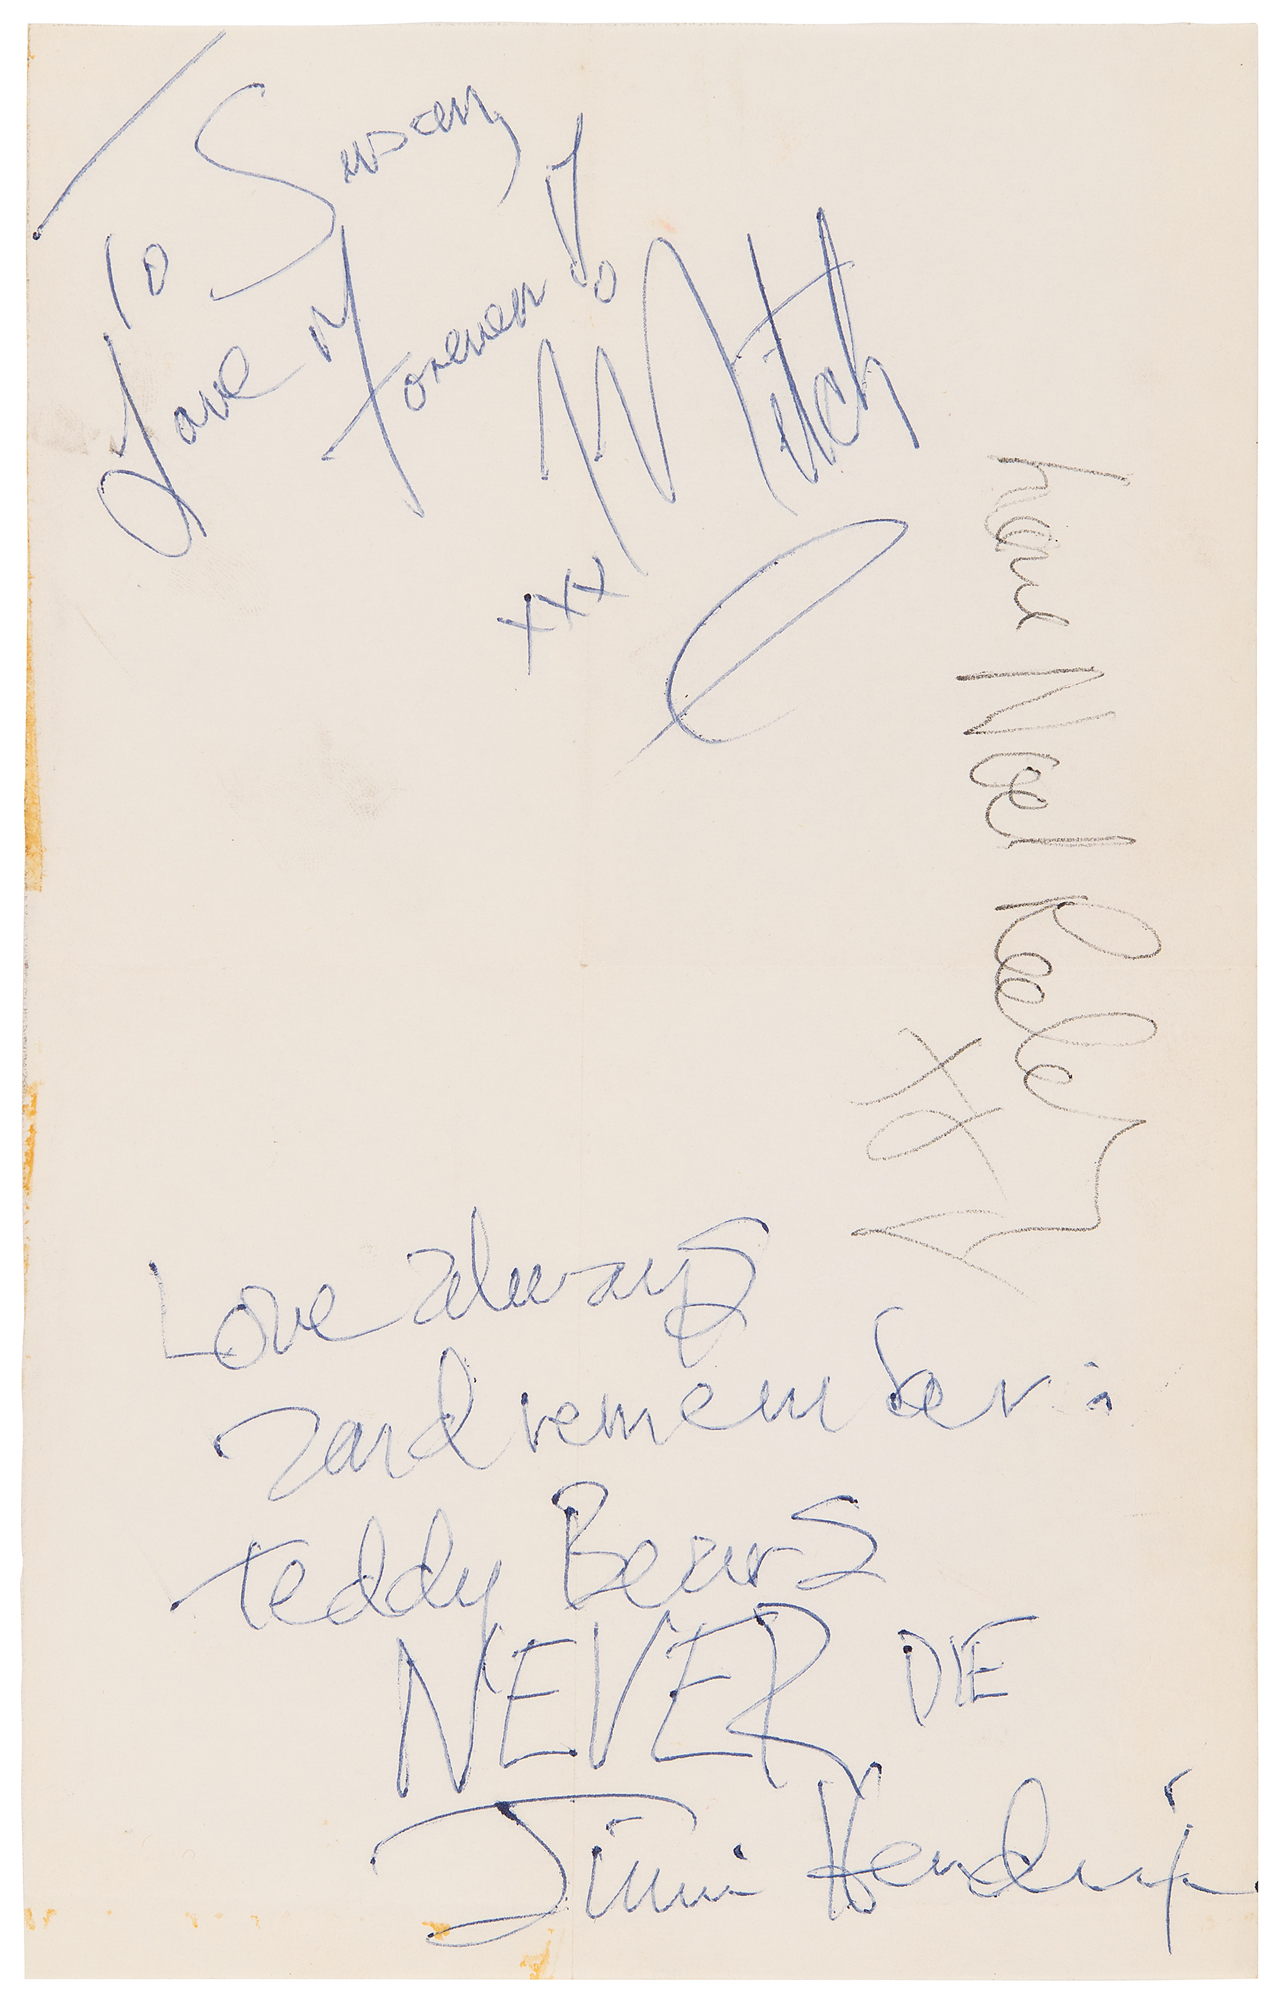 To Susan,
Love
Forever
Mitch
xxx
love Noel Redd
xx
Love always
and remember:
teddy Bears
NEVER DIE
Jimi Hendrix